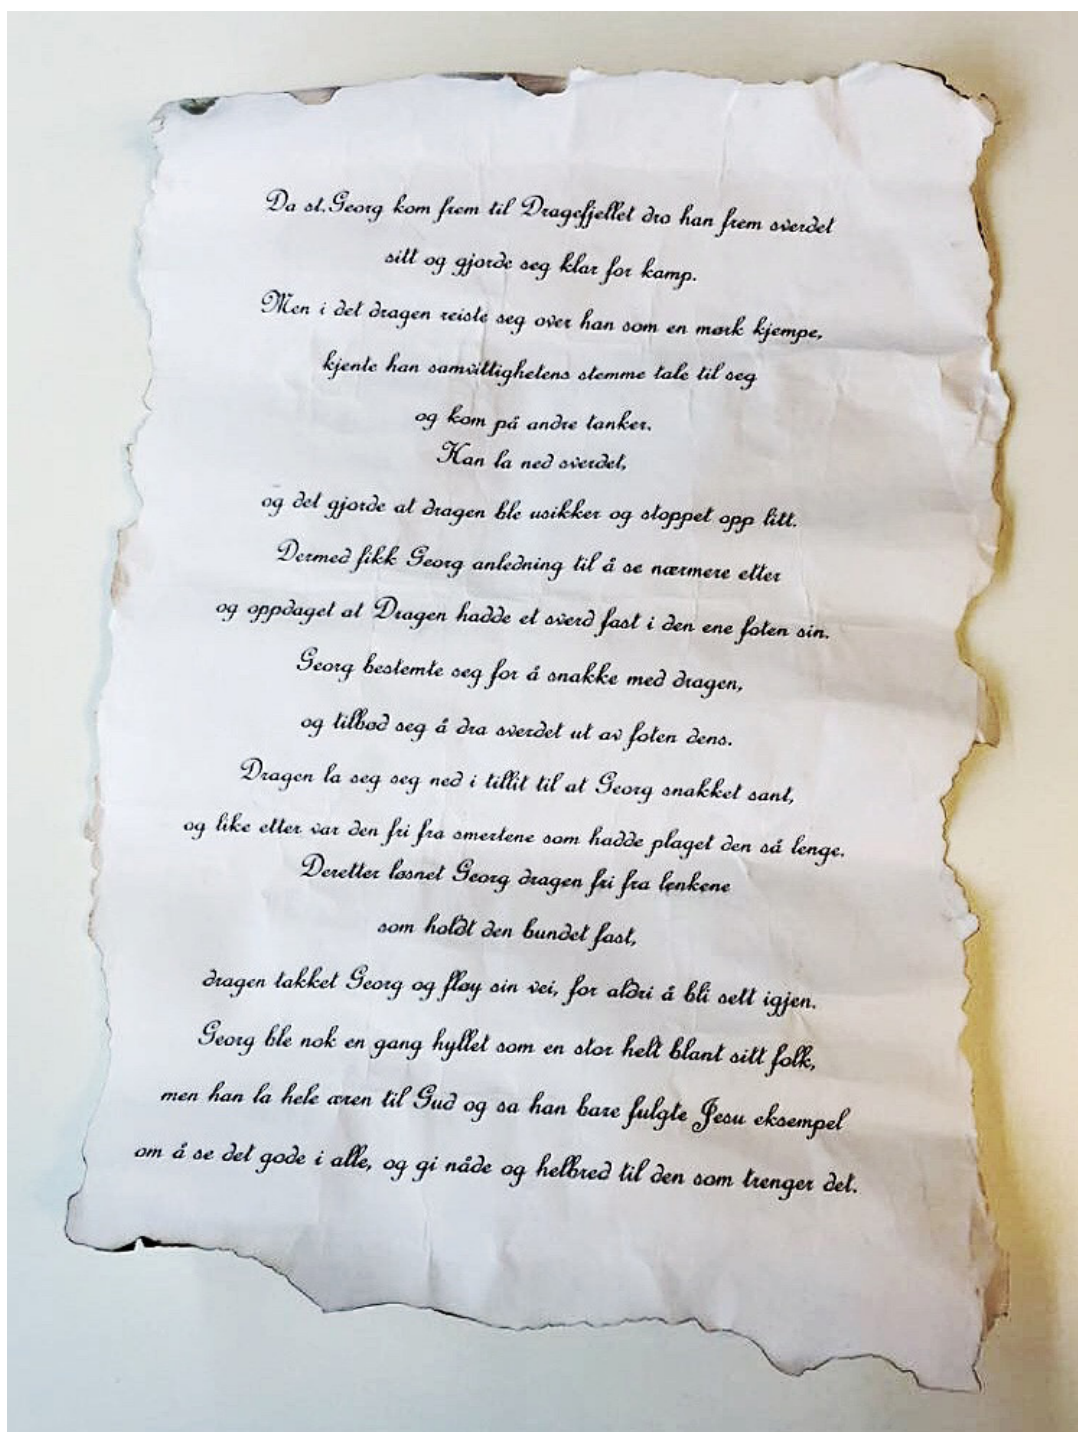 Da st.Georg kom frem til Dragefjellet dro han frem sverdet
sitt og gjorde seg klar for kamp.
Men i det dragen reiste seg over han som en mørk kjempe,
kjente han samvittighetens stemme tale til seg
og kom på andre tanker.
Han la ned sverdet,
og det gjorde at dragen ble usikker og stoppet opp litt.
Dermed fikk Georg anledning til å se nærmere etter
og oppdaget at Dragen hadde et sverd fast i den ene foten sin.
Georg bestemte seg for å snakke med dragen,
og tilbød seg å dra sverdet ut av foten dens.
Dragen la seg seg ned i tillit til at Georg snakket sant,
og like etter var den fri fra smertene som hadde plaget den så lenge.
Deretter løsnet Georg dragen fri fra lenkene
som holdt den bundet fast,
dragen takket Georg og fløy sin vei, for aldri å bli sett igjen.
Georg ble nok en gang hyllet som en stor helt blant sitt folk,
men han la hele æren til Gud og sa han bare fulgte Jesu eksempel
om å se det gode i alle, og gi nåde og helbred til den som trenger det.